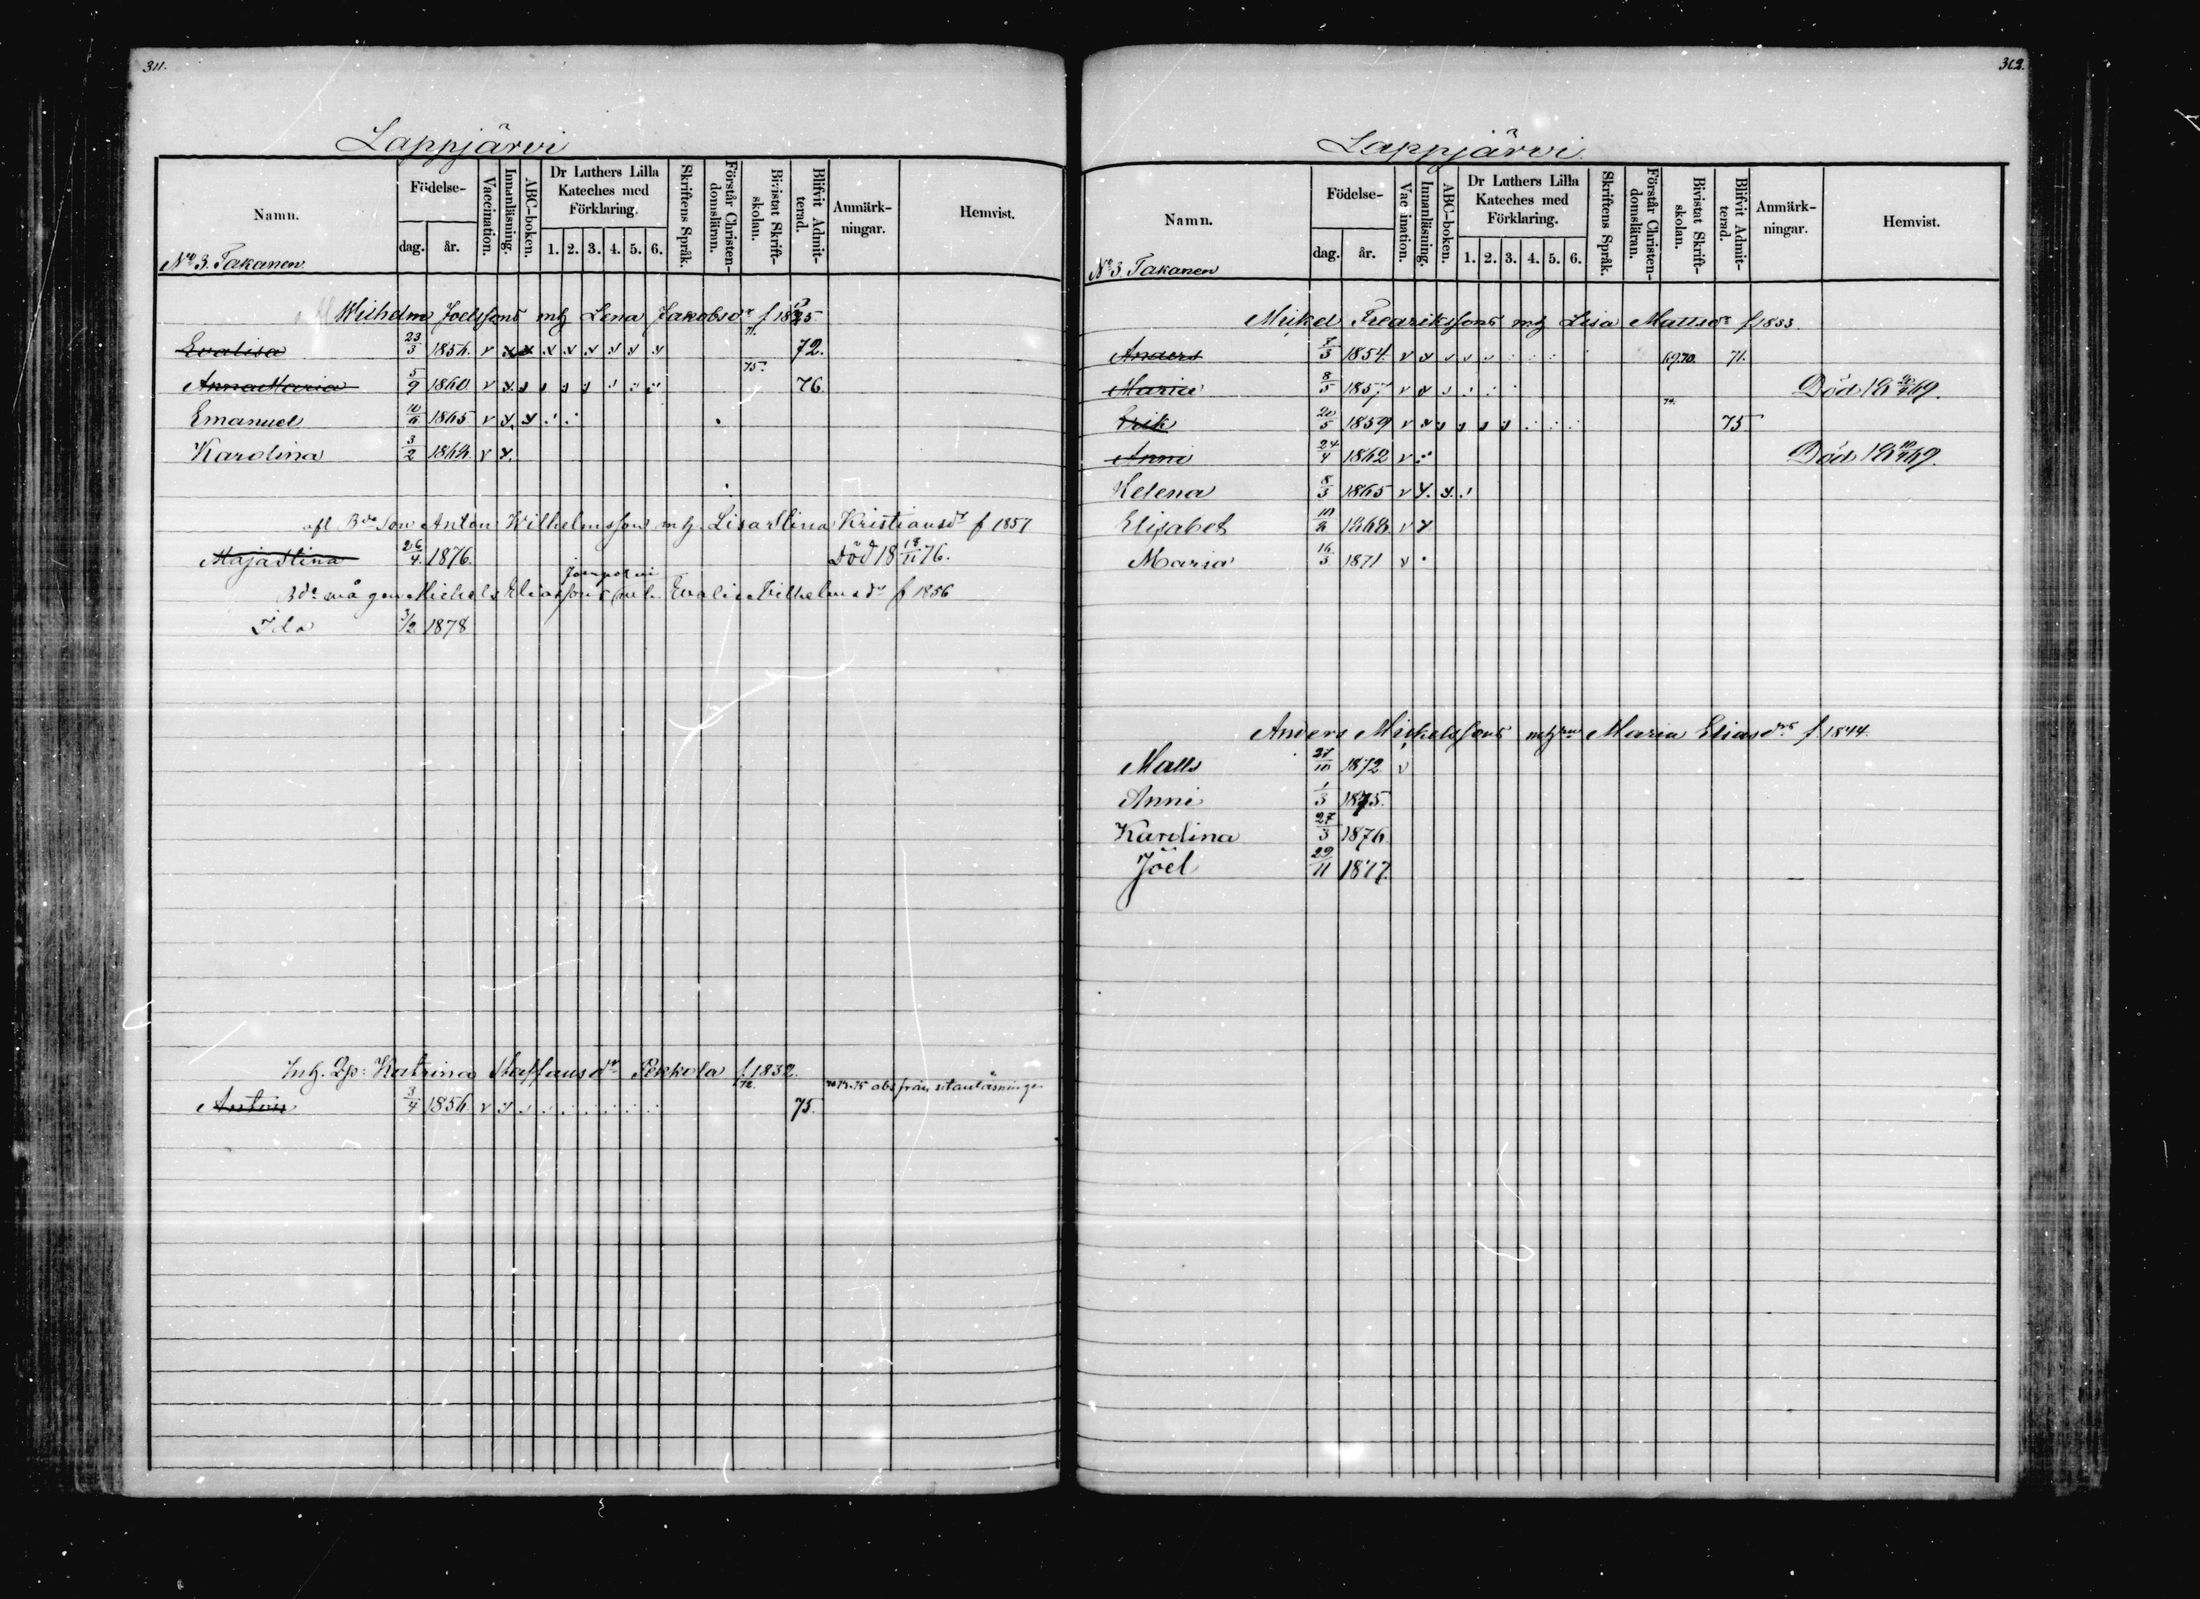 311.
Lappjärvi
Namn.
Födelse-
dag.
år.
Vaccination.
Innanläsning.
ABC-boken.
Dr Luthers Lilla
Kateches med
Förklaring.
1. 2. 3. 4. 5. 6.
Skriftens Språk.
Förstår Christen-
domsläran.
Bivistat Skrift-
skolan.
Blifvit Admit-
terad.
Anmärk-
ningar.
Hemvist.
No 3. Takanen
Wilhelm Joelssons mh Lena Jakobsdr f 1825.
Evalisa 23/3 1856. v x x x x x x x x 71. 72.
Anna Maria 5/9 1860 v x 75. 76
Emanuel 1865 v
Karolina 3/2 1868 v
afl Bde Son Anton Wilhelmssons mh. Lisastina Kristiansdr f 1857
Majastina 26/4 1876. Död 18 18/11 76.
Bde mågen Michels Eliassons Evalis Wilhelmsdr f 1856
Ida 3/2 1878
Inh. Katrina Staffansdr Pekkola f. 1832.
Anton 3/4 1856 v 72. 75. abs från utanläsningen
312.
Lappjärvi
Namn.
Födelse-
dag.
år.
Vac ination.
Innanläsning.
ABC-boken.
Dr Luthers Lilla
Kateches med
Förklaring.
1. 2. 3. 4. 5. 6.
Skriftens Språk.
Förstår Christen-
domsläran.
Bivistat Skrift-
skolan.
Blifvit Admit-
terad.
Anmärk-
ningar.
Hemvist.
No 3. Takanen
Mickel Fredrikssons mh Lisa Mattsdr f 1833.
Anders 7/3 1854. v 69.70. 71.
Maria 8/5 1857 v Död 18 69.
Erik 20/5 1859 v 74. 75
Anni 24/4 1862 v Död 18 69.
Helena 8/3 1865 v
Elisabet 1868. v
Maria 16/3 1871 v
Anders Mickelssons Maria Eliasdrs f. 1844.
Matts 27/10 1872 v
Anni 1/3 1875.
Karolina 27/3 1876
Joel 29/11 1877.